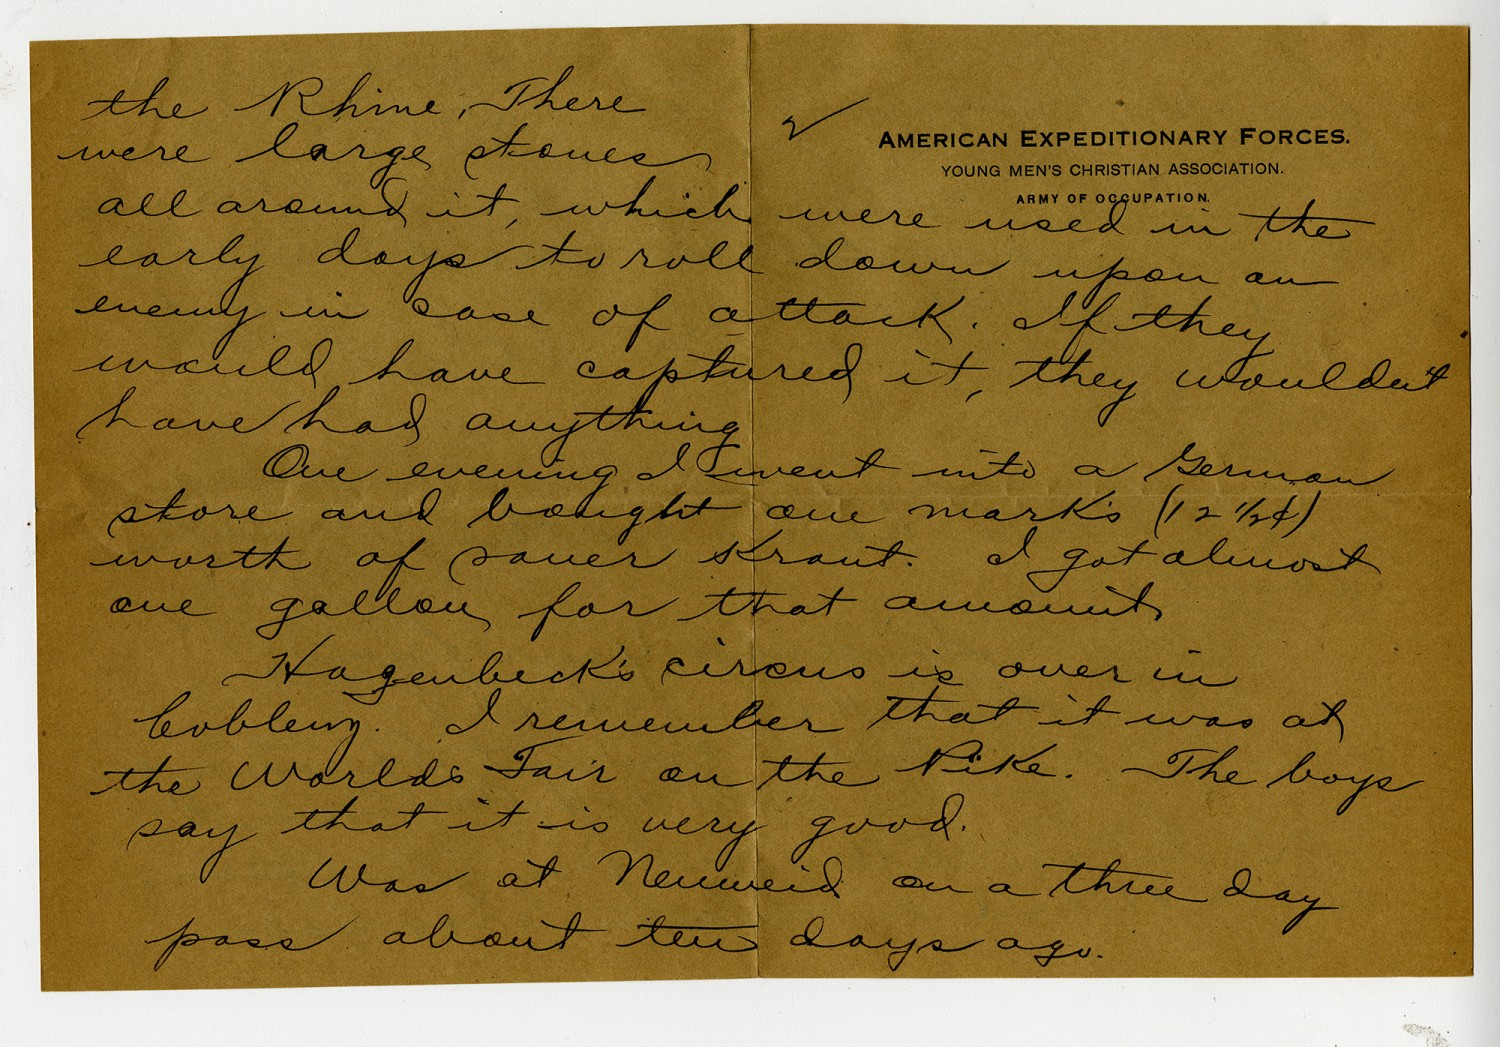 2
AMERICAN EXPEDITIONARY FORCES.
YOUNG MEN'S CHRISTIAN ASSOCIATION.
ARMY OF OCCUPATION.
the Rhine, There
were large stones
all around it, which were used in the
early days to roll down upon an
enemy in case of attack. If they
would have captured it, they wouldn't
have had anything
One evening I went into a German
store and bought one mark's (12 1/2¢)
worth of sauer Kraut. I got almost
one gallon for that amount
Hagenbeck's circus is over in
Coblenz. I remember that it was at
the World's Fair on the Pike. The boys
say that it is very good.
Was at Neuweid on a three day
pass about ten days ago.